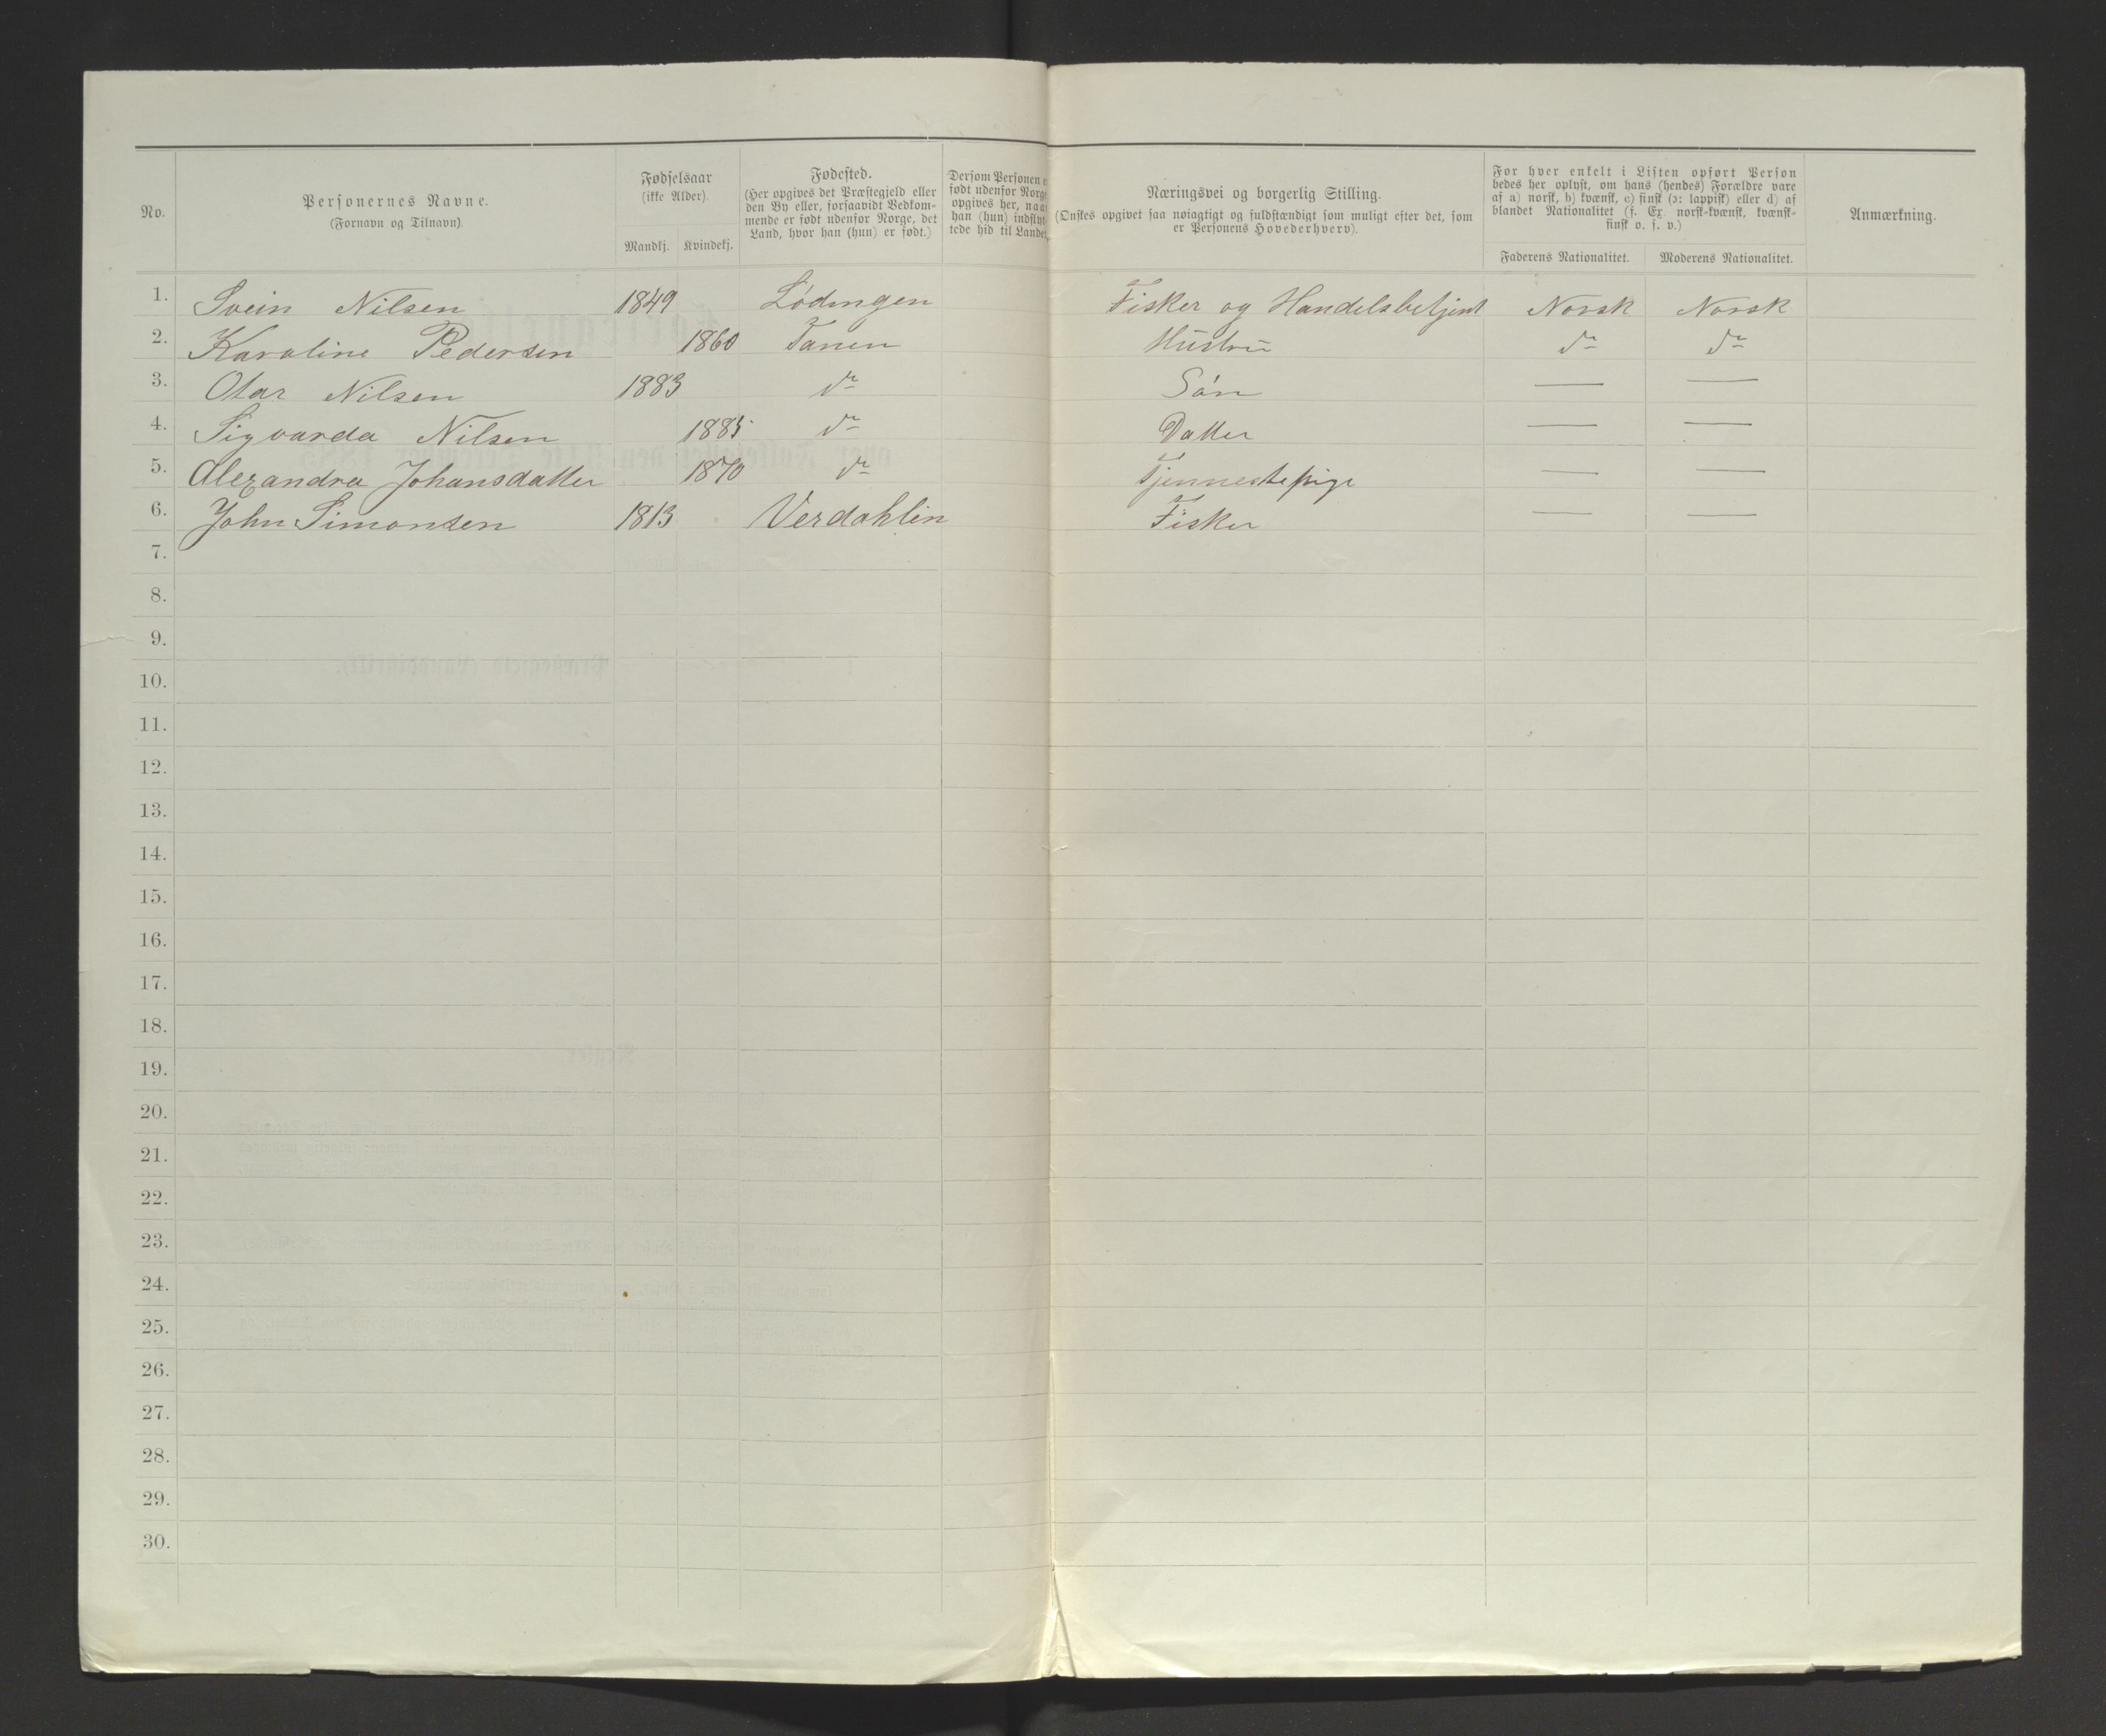 No.
Personernes Navne.
(Fornavn og Tilnavn).
Fødselsaar
(ikke Alder).
Mandkj. Kvindekj.
Fødested.
(Her opgives det Præstegjeld eller
den By eller, forsaavidt Vedkom-
mende er født udenfor Norge, det
Land, hvor han (hun) er født.)
Dersom Personen
født udenfor Norge
opgives her, naar
han (hun) indflyt-
tede hid til Landet.
Næringsvei og borgerlig Stilling.
(Ønskes opgivet saa nøiagtigt og fuldstændigt som muligt efter det, som
er Personens Hovederhverv).
For hver enkelt i Listen opført Person
bedes her oplyst, om hans (hendes) Forældre vare
af a) norsk, b) kvænsk, c) finsk (ɔ: lappisk) eller d) af
blandet Nationalitet (f. Ex. norsk-kvænsk, kvænsk-
finsk o. s. v.)
Faderens Nationalitet. Moderens Nationalitet.
Anmærkning.
1. Svein Nilsen 1849 Lødingen Fisker og Handelsbetjent Norsk Norsk
2. Karoline Pedersen 1860 Tanen Hustru do do
3. Otar Nilsen 1883 do Søn — —
4. Sigvarda Nilsen 1885 do Datter — —
5. Alexandra Johansdatter 1870 do Tjennestepige — —
6. John Simonsen 1813 Verdahlin Fisker — —
7.
8.
9.
10.
11.
12.
13.
14.
15.
16.
17.
18.
19.
20.
21.
22.
23.
24.
25.
26.
27.
28.
29.
30.